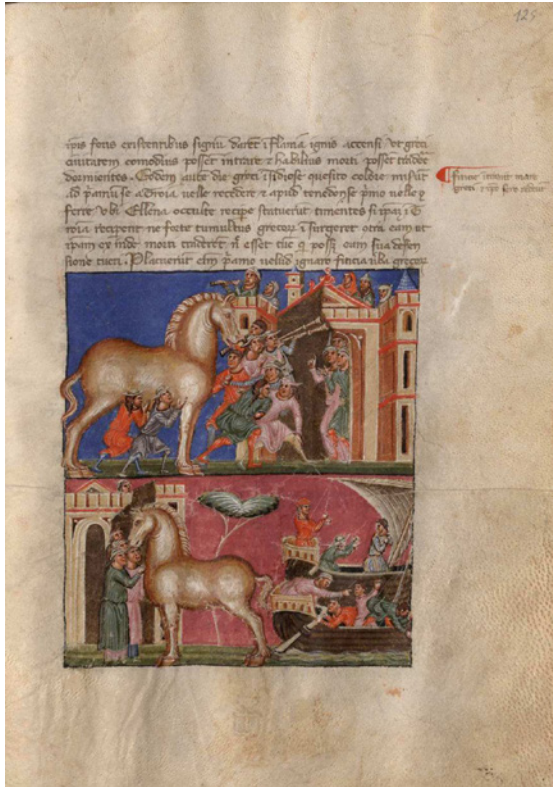 125
ipis foris existentibus signu daret i flama ignis accensi vt greci
ciuitatem comodius posset intrare z habilius morti posset tradere
dormientes. Eodem aute die greci isidiose quesito colore misut
ad pamu se a Troia uelle recedere z apud tenedon se pmo uelle p
ferre vbi Ellena occulte recipe statuerut timentes si ipaz i t
roia reciperent ne forte tumultus grecor isurgeret otra eam ut
ipam ex inde morti traderet n esset tuc q posset eam sua defen
sione tueri. Placuerut pamo uelud ignaro ficticia uba grecor
mare
greci